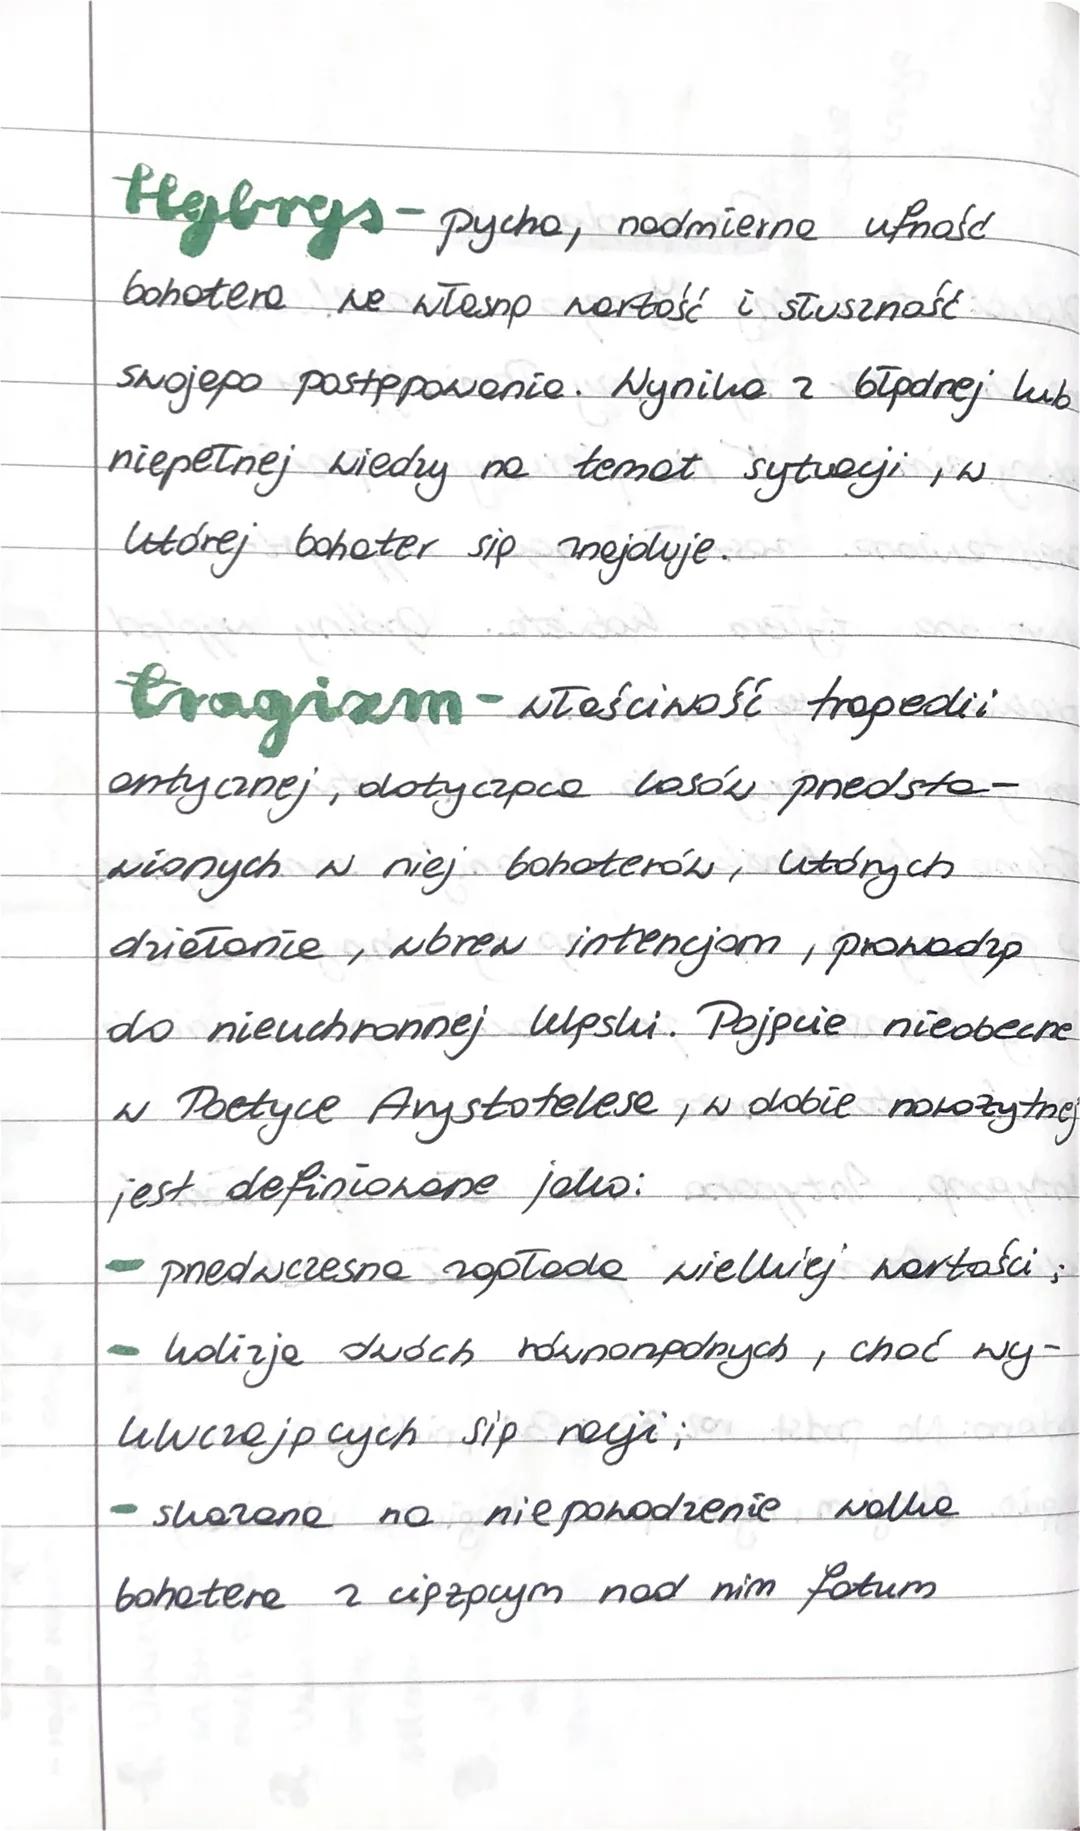 Hybrys - pycha, nadmierna ufność
bohatera we własną wartość i słuszność
swojego postępowania. Wynika z błędnej lub
niepełnej wiedzy na temat sytuacji, w
której bohater się znajduje.
tragizm - właściwość tragedii
antycznej, dotycząca losów przedsta-
wionych w niej bohaterów, których
działanie, wbrew intencjom, prowadzą
do nieuchronnej klęski. Pojęcie nieobecne
w Poetyce Arystotelesa, w dobie nowożytnej
jest definiowane jako:
- przedwczesna zagłada wielkiej wartości;
- kolizja dwóch równorzędnych, choć wy-
kluczających się racji;
- skazana na niepowodzenie walka
bohatera z ciążącym nad nim fatum